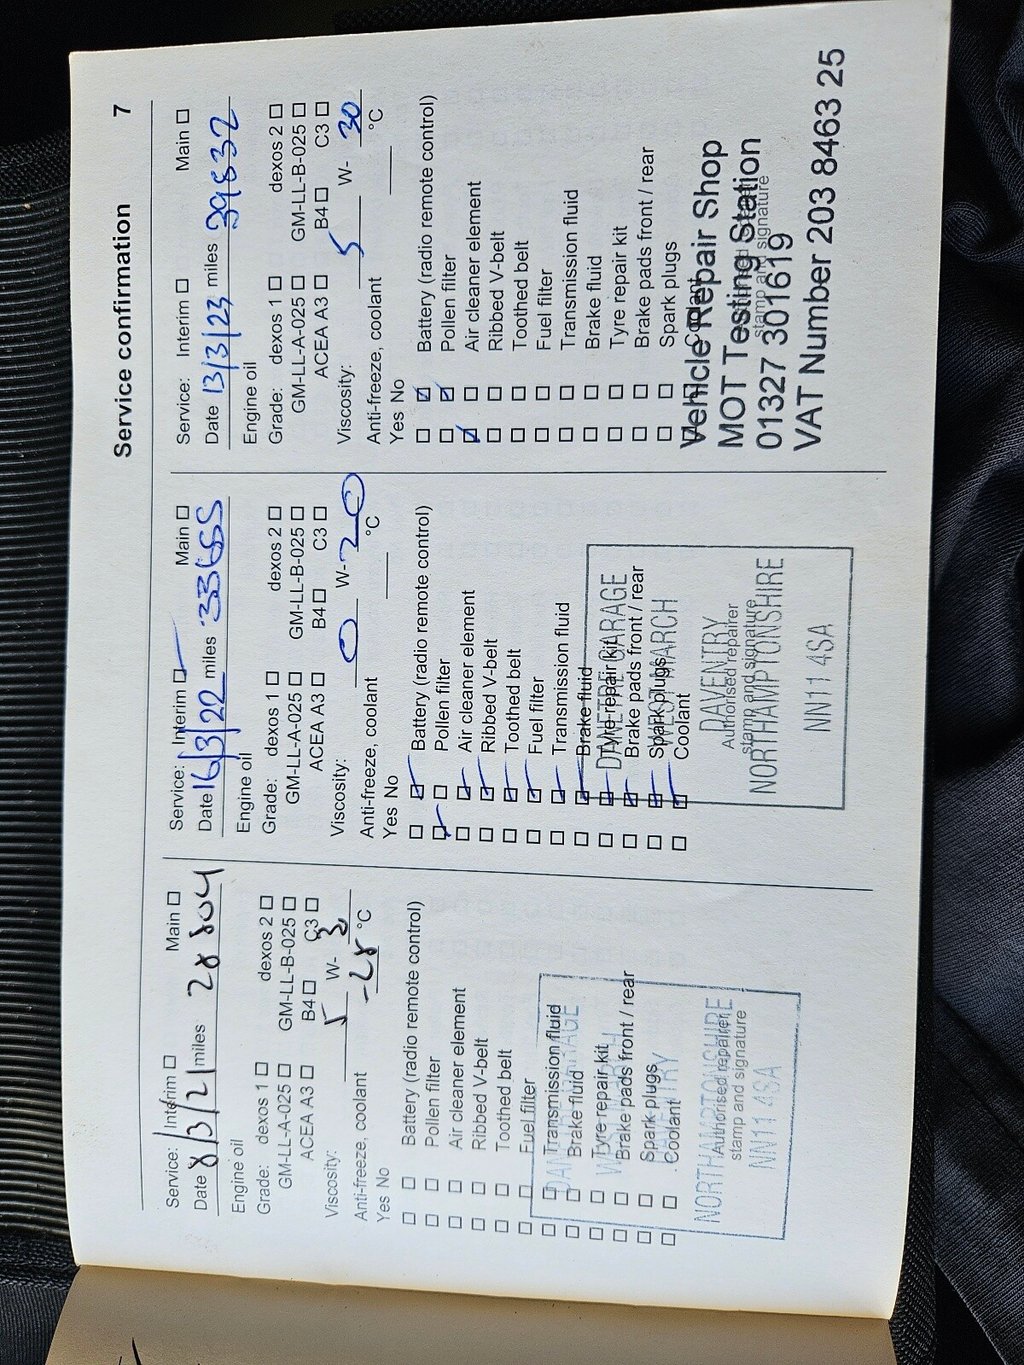 Service confirmation 7
Service: Interim ☐ Main ☐
Date 8/3/21 miles 28804
Engine oil
Grade: dexos 1 ☐ dexos 2 ☐
GM-LL-A-025 ☐ GM-LL-B-025 ☐
ACEA A3 ☐ B4 ☐ C3 ☐
Viscosity: 5 W-
Anti-freeze, coolant -28 °C
Yes No
☐ ☐ Battery (radio remote control)
☐ ☐ Pollen filter
☐ ☐ Air cleaner element
☐ ☐ Ribbed V-belt
☐ ☐ Toothed belt
☐ ☐ Fuel filter
☐ ☐ Transmission fluid
☐ ☐ Brake fluid
☐ ☐ Tyre repair kit
☐ ☐ Brake pads front / rear
☐ ☐ Spark plugs
☐ ☐ Coolant
Authorised repairer
stamp and signature
DANETRE GARAGE
WEST MARCH
DAVENTRY
NORTHAMPTONSHIRE
NN11 4SA
Service: Interim ☐ Main ☐
Date 16/3/22 miles 33655
Engine oil
Grade: dexos 1 ☐ dexos 2 ☐
GM-LL-A-025 ☐ GM-LL-B-025 ☐
ACEA A3 ☐ B4 ☐ C3 ☐
Viscosity: 0 W- 20
Anti-freeze, coolant °C
Yes No
☐ ☑ Battery (radio remote control)
☑ ☐ Pollen filter
☐ ☑ Air cleaner element
☐ ☑ Ribbed V-belt
☐ ☑ Toothed belt
☐ ☑ Fuel filter
☐ ☑ Transmission fluid
☐ ☑ Brake fluid
☐ ☑ Tyre repair kit
☐ ☑ Brake pads front / rear
☐ ☑ Spark plugs
☐ ☑ Coolant
Authorised repairer
stamp and signature
DANETRE GARAGE
WEST MARCH
DAVENTRY
NORTHAMPTONSHIRE
NN11 4SA
Service: Interim ☐ Main ☐
Date 13/3/23 miles 39832
Engine oil
Grade: dexos 1 ☐ dexos 2 ☐
GM-LL-A-025 ☐ GM-LL-B-025 ☐
ACEA A3 ☐ B4 ☐ C3 ☐
Viscosity: 5 W- 30
Anti-freeze, coolant °C
Yes No
☐ ☑ Battery (radio remote control)
☐ ☑ Pollen filter
☑ ☐ Air cleaner element
☐ ☐ Ribbed V-belt
☐ ☐ Toothed belt
☐ ☐ Fuel filter
☐ ☐ Transmission fluid
☐ ☐ Brake fluid
☐ ☐ Tyre repair kit
☐ ☐ Brake pads front / rear
☐ ☐ Spark plugs
☐ ☐ Coolant
stamp and signature
Vehicle Repair Shop
MOT Testing Station
01327 301619
VAT Number 203 8463 25